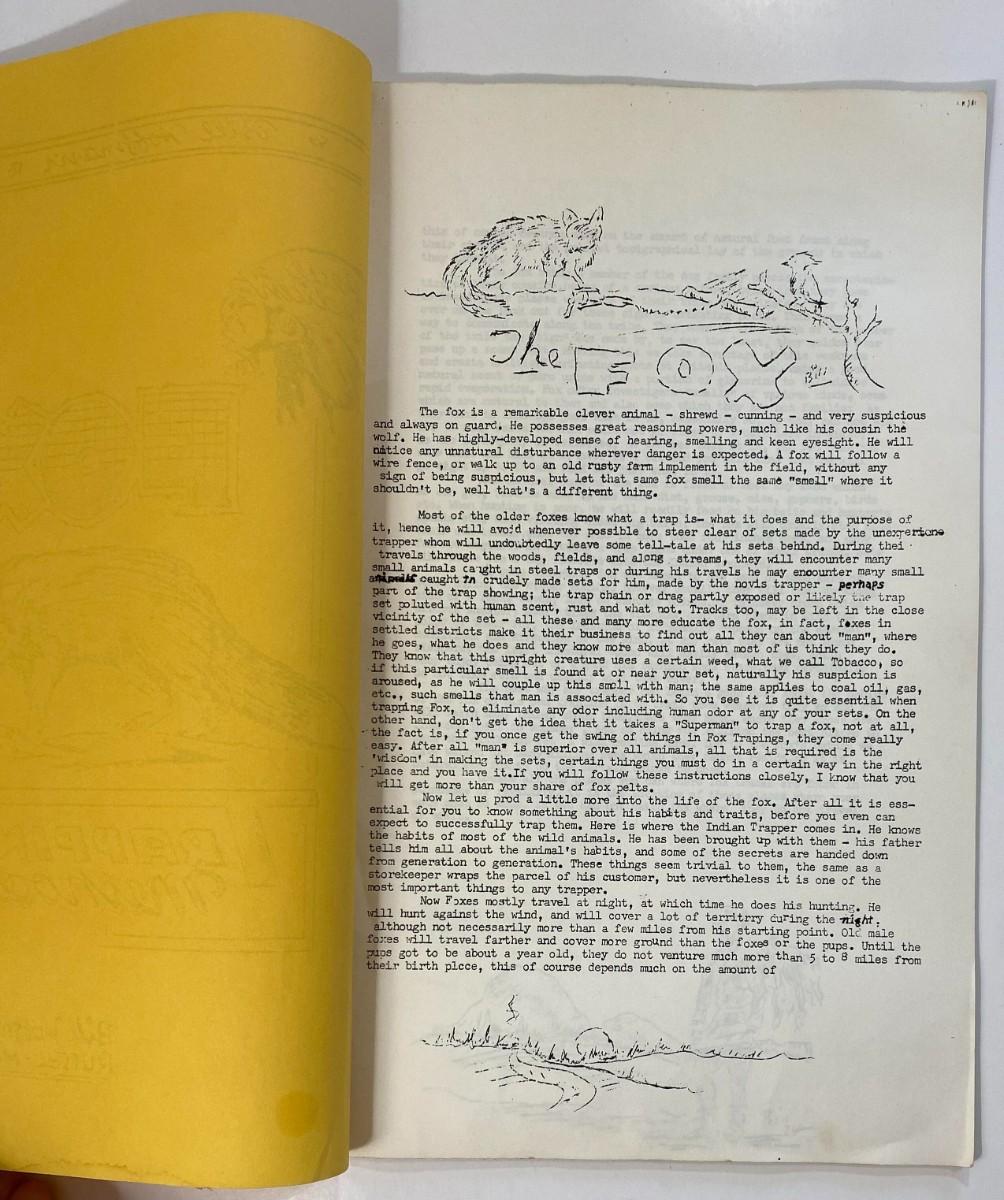 The FOX
Bill
The fox is a remarkable clever animal - shrewd - cunning - and very suspicious
and always on guard. He possesses great reasoning powers, much like his cousin the
wolf. He has highly-developed sense of hearing, smelling and keen eyesight. He will
notice any unnatural disturbance wherever danger is expected. A fox will follow a
wire fence, or walk up to an old rusty farm implement in the field, without any
sign of being suspicious, but let that same fox smell the same "smell" where it
shouldn't be, well that's a different thing.
Most of the older foxes know what a trap is- what it does and the purpose of
it, hence he will avoid whenever possible to steer clear of sets made by the
trapper whom will undoubtedly leave some tell-tale at his sets behind. During thei
travels through the woods, fields, and along streams, they will encounter many
small animals caught in steel traps or during his travels he may enounter many small
animals caught in crudely made sets for him, made by the novis trapper - perhaps
part of the trap showing; the trap chain or drag partly exposed or likely the trap
set poluted with human scent, rust and what not. Tracks too, may be left in the close
vicinity of the set - all these and many more educate the fox, in fact, foxes in
settled districts make it their business to find out all they can about "man", where
he goes, what he does and they know more about man than most of us think they do.
They know that this upright creature uses a certain weed, what we call Tobacco, so
if this particular smell is found at or near your set, naturally his suspicion is
aroused, as he will couple up this smell with man; the same applies to coal oil, gas,
etc., such smells that man is associated with. So you see it is quite essential when
trapping Fox, to eliminate any odor including human odor at any of your sets. On the
other hand, don't get the idea that it takes a "Superman" to trap a fox, not at all,
the fact is, if you once get the swing of things in Fox Trapings, they come really
easy. After all "man" is superior over all animals, all that is required is the
'wisdom' in making the sets, certain things you must do in a certain way in the right
place and you have it.If you will follow these instructions closely, I know that you
will get more than your share of fox pelts.
Now let us prod a little more into the life of the fox. After all it is ess-
ential for you to know something about his habits and traits, before you even can
expect to successfully trap them. Here is where the Indian Trapper comes in. He knows
the habits of most of the wild animals. He has been brought up with them - his father
tells him all about the animal's habits, and some of the secrets are handed down
from generation to generation. These things seem trivial to them, the same as a
storekeeper wraps the parcel of his customer, but nevertheless it is one of the
most important things to any trapper.
Now Foxes mostly travel at night, at which time he does his hunting. He
will hunt against the wind, and will cover a lot of territrry during the night,
although not necessarily more than a few miles from his starting point. Old male
foxes will travel farther and cover more ground than the foxes or the pups. Until the
pups got to be about a year old, they do not venture much more than 5 to 8 miles from
their birth plcce, this of course depends much on the amount of